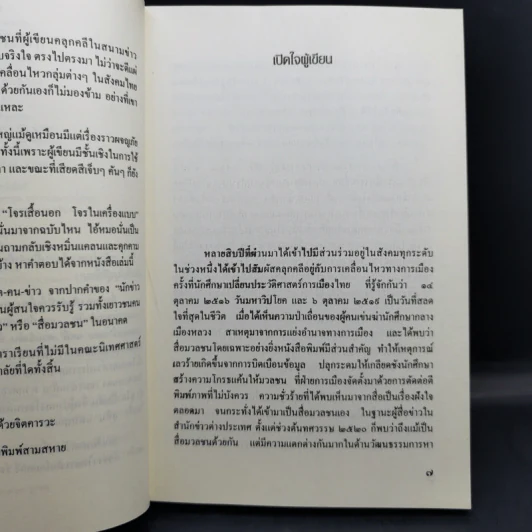 ชนที่ผู้เขียนคลุกคลีในสนามข่าว
บจริงใจ ตรงไปตรงมา ไม่ว่าจะดีแต่
คลื่อนไหวกลุ่มต่างๆ ในสังคมไทย
ด้วยกันเองก็ไม่มองข้าม อย่างที่เขา
แหละ
หญ่แม้ดูเหมือนมีแต่เรื่องราวผจญภัย
ทั้งนี้เพราะผู้เขียนมีชั้นเชิงในการใช้
า และขณะที่เสียดสีเจ็บๆ คันๆ ก็ยัง
"โจรเสื้อนอก โจรในเครื่องแบบ"
นั่มาจากฉบับไหน ไอ้หมอนั่นเป็น
นถามกลับเชิงหมิ่นแคลนและคุกคาม
ง หาคำตอบได้จากหนังสือเล่มนี้
ด-คน-ข่าว จากปากคำของ "นักข่าว
ผู้สนใจควรรับรู้ รวมทั้งเยาวชนคน
" หรือ "สื่อมวลชน" ในอนาคต
าราเรียนที่ไม่มีในคณะนิเทศศาสตร์
าลัยที่ใดทั้งสิ้น
ด้วยจิตคารวะ
พิมพ์สามสหาย
เปิดใจผู้เขียน
หลายสิบปีที่ผ่านมาได้เข้าไปมีส่วนร่วมอยู่ในสังคมทุกระดับ
ในช่วงหนึ่งได้เข้าไปสัมผัสคลุกคลีอยู่กับการเคลื่อนไหวทางการเมือง
ครั้งที่นักศึกษาเปลี่ยนประวัติศาสตร์การเมืองไทย ที่รู้จักกันว่า ๑๔
ตุลาคม ๒๕๑๖ วันมหาวิปโยค และ ๖ ตุลาคม ๒๕๑๙ เป็นวันที่สลด
ใจที่สุดในชีวิต เมื่อได้เห็นความป่าเถื่อนของผู้คนเข่นฆ่านักศึกษากลาง
เมืองหลวง สาเหตุมาจากการแย่งอำนาจทางการเมือง และได้พบว่า
สื่อมวลชนโดยเฉพาะอย่างยิ่งหนังสือพิมพ์มีส่วนสำคัญ ทำให้เหตุการณ์
เลวร้ายเกิดขึ้นจากการบิดเบือนข้อมูล ปลุกระดมให้เกลียดชังนักศึกษา
สร้างความโกรธแค้นให้มวลชน ที่ฝ่ายการเมืองจัดตั้งมาด้วยการตัดต่อตี
พิมพ์ภาพที่ไม่บังควร ความชั่วร้ายที่ได้พบเห็นมาจากสื่อเป็นเรื่องฝังใจ
ตลอดมา จนกระทั่งได้เข้ามาเป็นสื่อมวลชนเอง ในฐานะผู้สื่อข่าวใน
สำนักข่าวต่างประเทศ ตั้งแต่ช่วงต้นทศวรรษ ๒๕๒๐ ก็พบว่าถึงแม้เป็น
สื่อมวลชนด้วยกัน แต่มีความแตกต่างกันมากในด้านวัฒนธรรมการหา
๗